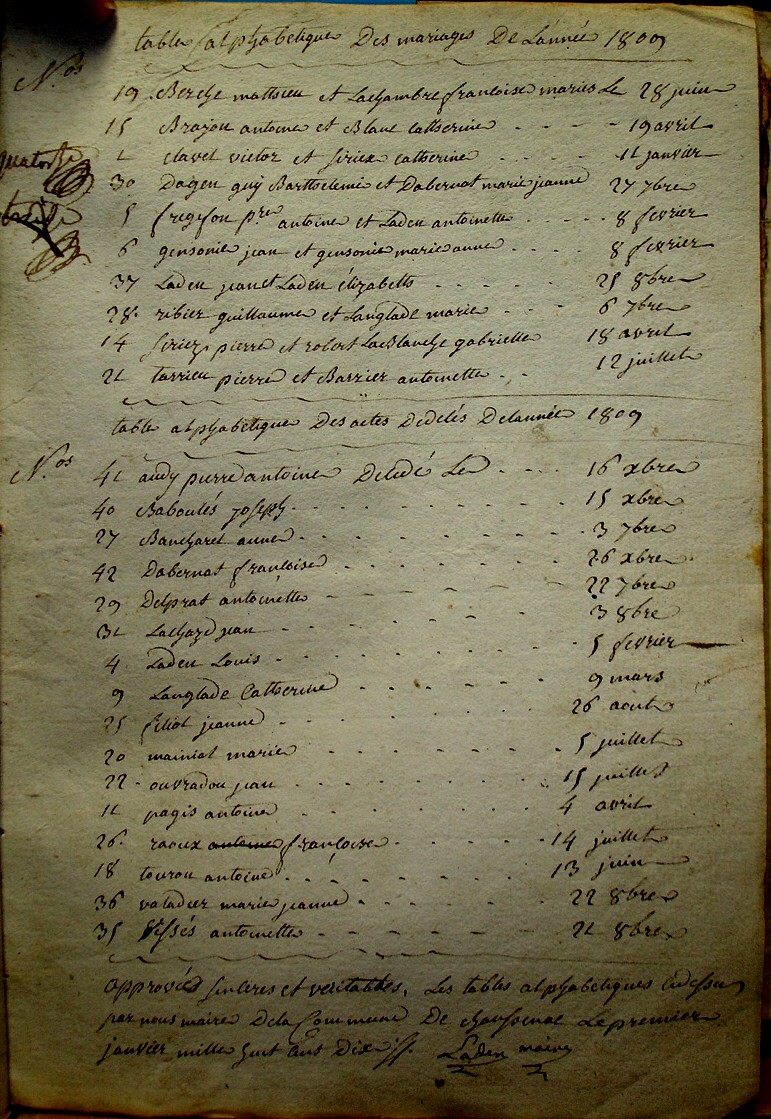 table alphabetique Des mariages De L'année 1809
N.os
19 Berche mathieu et Lachambre francoise mariés Le 28 juin
15 Brajou antoine et Blanc catherine 19 avril
2 clavel victor et seriex catherine 12 janvier
30 Dagen guy Barthelemi et Dabernat marie jeanne 27 7bre
5 fregefon p.re antoine et Laden antoinette 8 fevrier
6 gensonie jean et gensonie marie anne 8 fevrier
37 Laden jean et Laden élizabeth 25 8bre
28 ribier guillaume et Langlade marie 6 7bre
14 seriez pierre et robert LaBlanche gabrielle 18 avril
21 tarrieu pierre et Barrier antoinette 12 juillet
table alphabetique Des actes Dedeces Delannée 1809
N.os
41 audy pierre antoine Decedé Le 16 xbre
40 Baboulés joseph 15 xbre
27 Bancharel anne 3 7bre
42 Dabernat francoise 26 xbre
29 Delprat antoinette 22 7bre
31 Lachaze jean 3 8bre
4 Laden Louis 5 fevrier
9 Langlade Catherine 9 mars
25 filiol jeanne 26 aout
20 mainial marie 5 juillet
22 ouvradou jean 15 juillet
11 pagis antoine 4 avril
26 raoux antoine francoise 14 juillet
18 tourou antoine 13 juin
36 valadier marie jeanne 22 8bre
35 antoinette 21 8bre
approvés sinceres et veritables, Les tables alphabetiques cidessus
par nous maire Dela Commune De Le premier
janvier mille huit cent Dix Laden maire